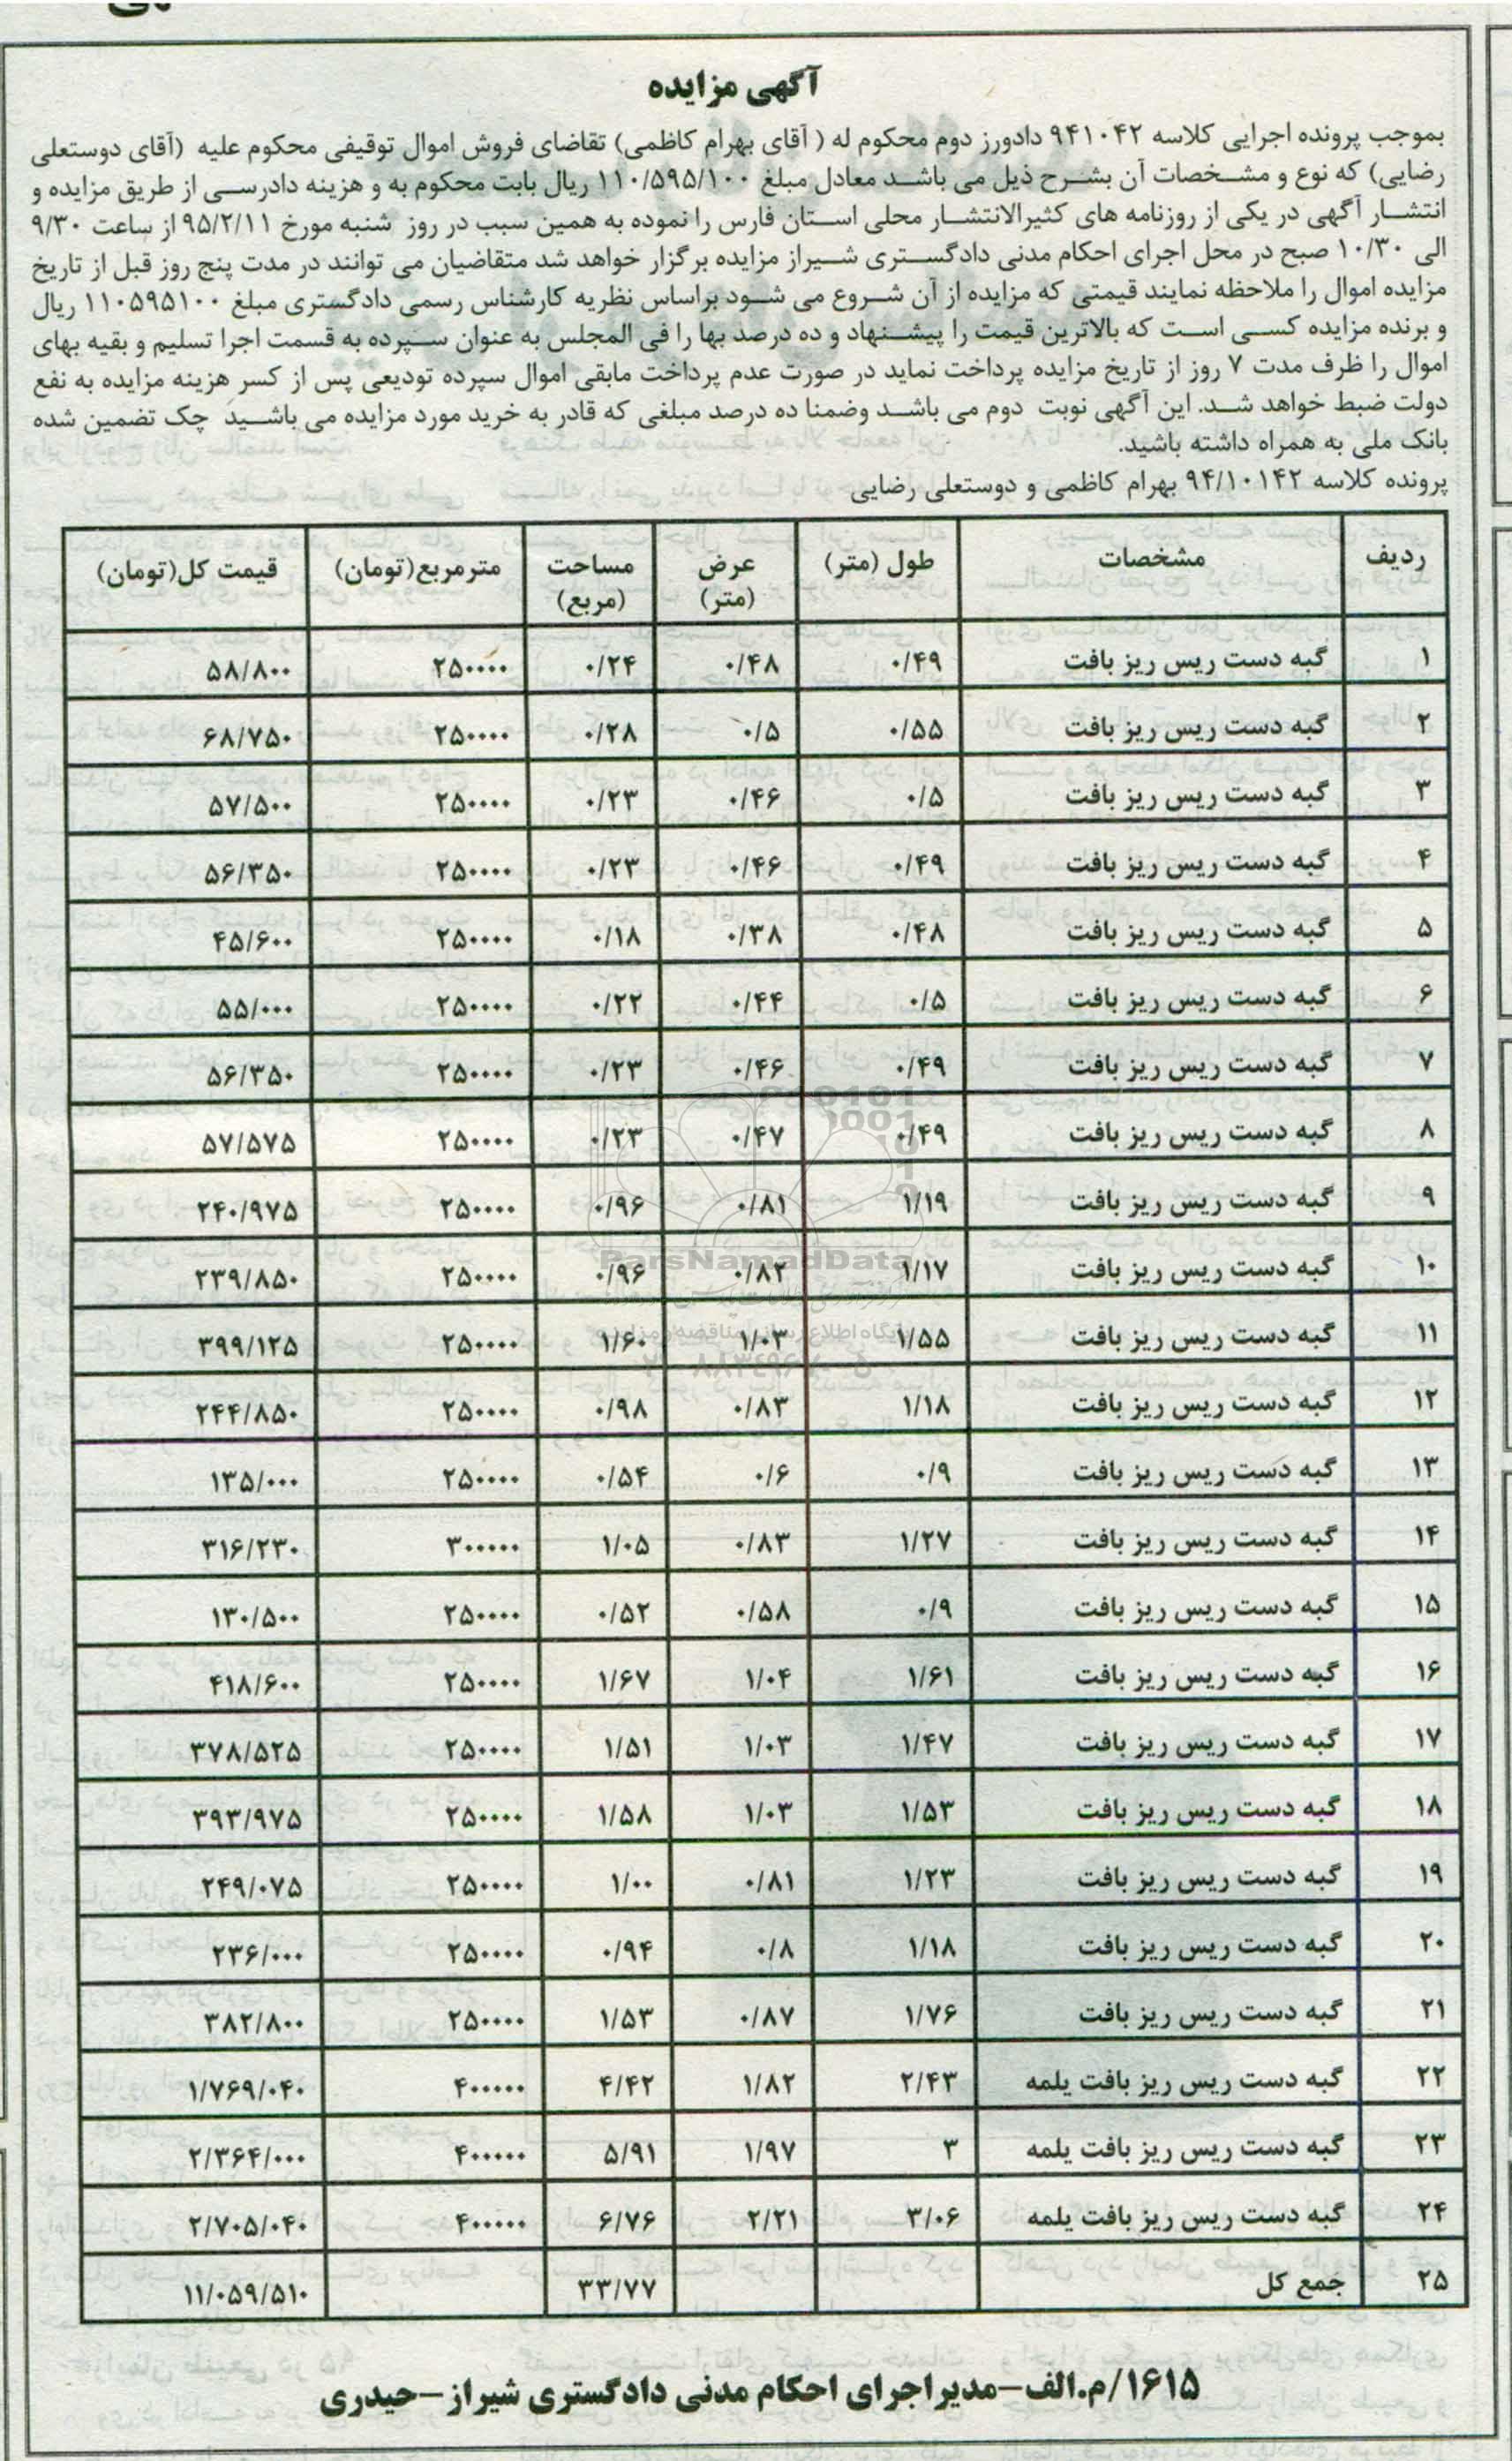 آگهی مزایده
بموجب پرونده اجرایی کلاسه ۹۴۱۰۴۲ دادورز دوم محکوم له ( آقای بهرام کاظمی) تقاضای فروش اموال توقیفی محکوم علیه (آقای دوستعلی
رضایی) که نوع و مشخصات آن بشرح ذیل می باشد معادل مبلغ ۱۱۰/۵۹۵/۱۰۰ ریال بابت محکوم به و هزینه دادرسی از طریق مزایده و
انتشار آگهی در یکی از روزنامه های کثیرالانتشار محلی استان فارس را نموده به همین سبب در روز شنبه مورخ ۹۵/۲/۱۱ از ساعت ۹/۳۰
الی ۱۰/۳۰ صبح در محل اجرای احکام مدنی دادگستری شیراز مزایده برگزار خواهد شد متقاضیان می توانند در مدت پنج روز قبل از تاریخ
مزایده اموال را ملاحظه نمایند قیمتی که مزایده از آن شروع می شود براساس نظریه کارشناس رسمی دادگستری مبلغ ۱۱۰۵۹۵۱۰۰ ریال
و برنده مزایده کسی است که بالاترین قیمت را پیشنهاد و ده درصد بها را فی المجلس به عنوان سپرده به قسمت اجرا تسلیم و بقیه بهای
اموال را ظرف مدت ۷ روز از تاریخ مزایده پرداخت نماید در صورت عدم پرداخت مابقی اموال سپرده تودیعی پس از کسر هزینه مزایده به نفع
دولت ضبط خواهد شد. این آگهی نوبت دوم می باشد وضمنا ده درصد مبلغی که قادر به خرید مورد مزایده می باشید چک تضمین شده
بانک ملی به همراه داشته باشید.
پرونده کلاسه ۹۴/۱۰۱۴۲ بهرام کاظمی و دوستعلی رضایی
ردیف مشخصات طول (متر) عرض (متر) مساحت (مربع) مترمربع(تومان) قیمت کل(تومان)
۱ گبه دست ریس ریز بافت ۰/۴۹ ۰/۴۸ ۰/۲۴ ۲۵۰۰۰۰ ۵۸/۸۰۰
۲ گبه دست ریس ریز بافت ۰/۵۵ ۰/۵ ۰/۲۸ ۲۵۰۰۰۰ ۶۸/۷۵۰
۳ گبه دست ریس ریز بافت ۰/۵ ۰/۴۶ ۰/۲۳ ۲۵۰۰۰۰ ۵۷/۵۰۰
۴ گبه دست ریس ریز بافت ۰/۴۹ ۰/۴۶ ۰/۲۳ ۲۵۰۰۰۰ ۵۶/۳۵۰
۵ گبه دست ریس ریز بافت ۰/۴۸ ۰/۳۸ ۰/۱۸ ۲۵۰۰۰۰ ۴۵/۶۰۰
۶ گبه دست ریس ریز بافت ۰/۵ ۰/۴۴ ۰/۲۲ ۲۵۰۰۰۰ ۵۵/۰۰۰
۷ گبه دست ریس ریز بافت ۰/۴۹ ۰/۴۶ ۰/۲۳ ۲۵۰۰۰۰ ۵۶/۳۵۰
۸ گبه دست ریس ریز بافت ۰/۴۹ ۰/۴۷ ۰/۲۳ ۲۵۰۰۰۰ ۵۷/۵۷۵
۹ گبه دست ریس ریز بافت ۱/۱۹ ۰/۸۱ ۰/۹۶ ۲۵۰۰۰۰ ۲۴۰/۹۷۵
۱۰ گبه دست ریس ریز بافت ۱/۱۷ ۰/۸۲ ۰/۹۶ ۲۵۰۰۰۰ ۲۳۹/۸۵۰
ParsNamadData
۱۱ گبه دست ریس ریز بافت ۱/۵۵ ۱/۰۳ ۱/۶۰ ۲۵۰۰۰۰ ۳۹۹/۱۲۵
۱۲ گبه دست ریس ریز بافت ۱/۱۸ ۰/۸۳ ۰/۹۸ ۲۵۰۰۰۰ ۲۴۴/۸۵۰
۱۳ گبه دست ریس ریز بافت ۰/۹ ۰/۶ ۰/۵۴ ۲۵۰۰۰۰ ۱۳۵/۰۰۰
۱۴ گبه دست ریس ریز بافت ۱/۲۷ ۰/۸۳ ۱/۰۵ ۳۰۰۰۰۰ ۳۱۶/۲۳۰
۱۵ گبه دست ریس ریز بافت ۰/۹ ۰/۵۸ ۰/۵۲ ۲۵۰۰۰۰ ۱۳۰/۵۰۰
۱۶ گبه دست ریس ریز بافت ۱/۶۱ ۱/۰۴ ۱/۶۷ ۲۵۰۰۰۰ ۴۱۸/۶۰۰
۱۷ گبه دست ریس ریز بافت ۱/۴۷ ۱/۰۳ ۱/۵۱ ۲۵۰۰۰۰ ۳۷۸/۵۲۵
۱۸ گبه دست ریس ریز بافت ۱/۵۳ ۱/۰۳ ۱/۵۸ ۲۵۰۰۰۰ ۳۹۳/۹۷۵
۱۹ گبه دست ریس ریز بافت ۱/۲۳ ۰/۸۱ ۱/۰۰ ۲۵۰۰۰۰ ۲۴۹/۰۷۵
۲۰ گبه دست ریس ریز بافت ۱/۱۸ ۰/۸ ۰/۹۴ ۲۵۰۰۰۰ ۲۳۶/۰۰۰
۲۱ گبه دست ریس ریز بافت ۱/۷۶ ۰/۸۷ ۱/۵۳ ۲۵۰۰۰۰ ۳۸۲/۸۰۰
۲۲ گبه دست ریس ریز بافت یلمه ۲/۴۳ ۱/۸۲ ۴/۴۲ ۴۰۰۰۰۰ ۱/۷۶۹/۰۴۰
۲۳ گبه دست ریس ریز بافت یلمه ۳ ۱/۹۷ ۵/۹۱ ۴۰۰۰۰۰ ۲/۳۶۴/۰۰۰
۲۴ گبه دست ریس ریز بافت یلمه ۳/۰۶ ۲/۲۱ ۶/۷۶ ۴۰۰۰۰۰ ۲/۷۰۵/۰۴۰
۲۵ جمع کل ۳۳/۷۷ ۱۱/۰۵۹/۵۱۰
۱۶۱۵/م.الف-مدیراجرای احکام مدنی دادگستری شیراز-حیدری